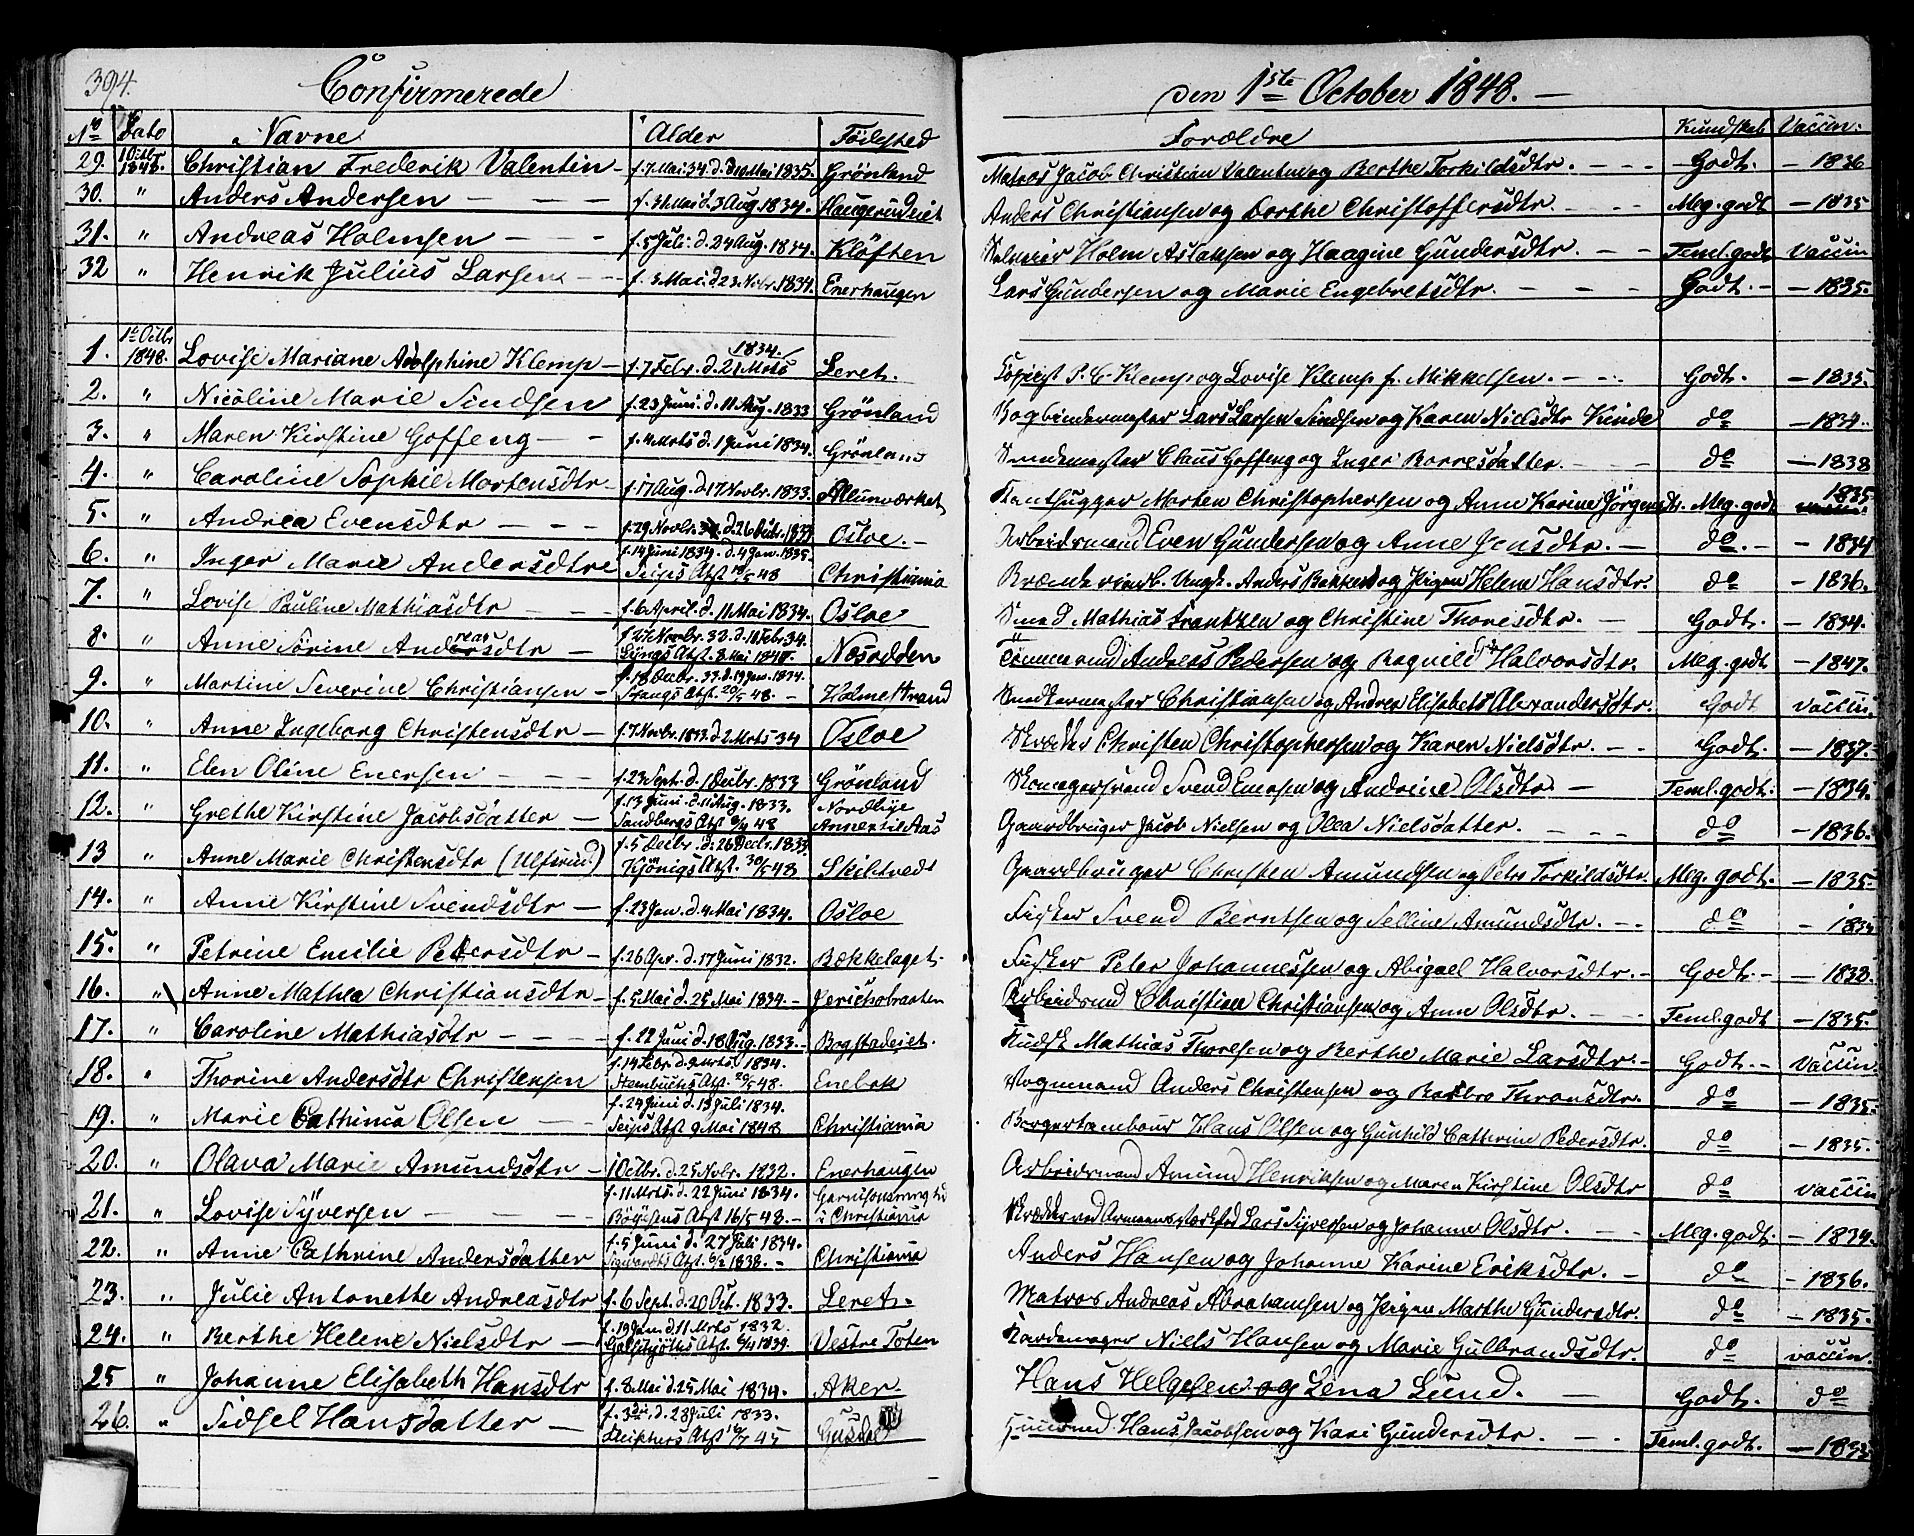 394.
Confirmerede
den 1ste October 1848. —
No Dato Navne Alder Födested Forældre Kundskab Vaccin:
29. 1 Octbr 1848. Christian Frederik Valentin – f. 7 Mai 34. d. d 10 Mai 1835. Grönland Matros Jacob Christian Valentin og Berthe Torkildsdtr. – Godt. – 1836
30. " Anders Andersen – f. 31 Mai d. 3 Aug. 1834. Haugerudeiet Anders Christiansen og Dorthe Christoffersdtr. – Meg. godt – 1835
31. " Andreas Holmsen – f. 5 Juli. d. 24 Aug. 1834. Klöften Holm Aslaksen og Haagine Gundersdtr. – Teml. godt Vaccin
32 " Henrik Julius Larsen – f. 3 Mai. d 23 Nobr. 1834. Enerhaugen Lars Gundersen og Marie Engebretsdtr. – Godt. – – 1835.
1. 1ste Octbr 1848. Lovise Mariane Adolphine Klemp – f. 7 Febr. d. 21 Mrts 1834. Leret. P. C. Klemp og Lovise Klemp f. Mikkelsen. – Godt. – 1835.
2. " Nicoline Marie Sindsen f. 23 Juni. d. 11 Aug. 1833 Grönland Bogbindermester Lars Larsen Sindsen og Karen Nielsdtr Kinde do – 1834.
3. " Maren Kirstine Goffeng – f. 4 Mrts d. 1 Juni 1834. Grönland Claus Goffeng og Inger Borresdatter. – do – 1838
4. " Caroline Sophie Mortensdtr. f. 17 Aug. d 17 Novbr. 1833. Alunværket Morten Christophersen og Anne Karine Jörgensdtr. Meg. godt 1835
5. " Andrea Evensdtr – f. 29 Novbr. d. 26 Osloe. – Arbeidsmand Even Gundersen og Anne Jensdtr. – do. – – 1834
6. " Inger Marie Andersdtr f. 14 Juni 1834. d. 4 Jan. 1835. Seips Atst 18/5 48 Christiania Ungk. Anders Bakken og Pigen Helene Hansdtr. do – 1836.
7. " Lovise Pauline Mathiasdtr – f. 6 April. d. 11 Mai 1834. Osloe Smed Mathias Frantzen og Christine Thoresdtr. – Godt. – 1834.
8. " Anne Sörine Andreasdtr – f. 27 Novbr. 33. d. 11 Febr. 34. Lyngs Atst. 8 Mai 1848. Næsodden Tömmermd Andreas Pedersen og Ragnild Halvorsdtr. Meg. godt – 1847.
9. " Martine Severine Christiansen – f. 18 Decbr. 33. d. 19 Jan. 1834. Atst. 20/5 48. – Holmestrand Snedkermester Christiansen og Andrea Elisabets Alexandersdtr. Godt Vaccin.
10. " Anne Ingeborg Christensdtr – f. 7 Novbr. 1833. d. 2 Mrts 34 Osloe Skrædder Christen Christophersen og Karen Nielsdtr. – Godt. – 1837.
11. " Elen Oline Enersen – f. 23 Sept. d. 1 Decbr. 1833 Grönland Skomagersvend Svend Enersen og Andrine Olsdtr – Teml. godt. – 1834.
12. " Grethe Kirstine Jacobsdatter – f. 13 Juni. d. 11 Aug. 1833. Sandbergs Atst 48 Nordbye Annex til Aas Gaardbruger Jacob Nielsen og Olea Nielsdatter. – do – 1836.
13 " Anne Marie Christensdtr (Ulfsrud) f. 5 Decbr. d. 26 Decbr. 1833. Königs Atst. 30/5 48 Skibtvedt Gaardbruger Christen Amundsen og Petro Torkildsdtr. Meg. godt. – 1835.
14. " Anne Kirstine Svendsdtr – f. 23 Jan. d. 4 Mai 1834. Osloe Fisker Svend Berntsen og Selline Amundsdtr. – do – 1834
15. " Petrine Emilie Pedersdtr – f. 26 Apr. d. 17 Juni 1832. Bækkelaget. Fisker Peter Johannessen og Abigael Halvorsdtr. – Godt. – – 1833.
16. " Anne Mathea Christiansdtr – f. 5 Mai d. 25 Mai 1834. – Jerichobraaten Arbeidsmd Christian Christiansen og Anne Olsdtr. – Teml. godt – 1835.
17. " Caroline Mathiasdtr – f. 22 Juni d. 18 Aug. 1833. – Bogstadeiet. Mathias Thoresen og Berthe Marie Larsdtr. – Godt. – Vaccin
18. " Thorine Andersdtr Christensen f. 14 Febr. d. 9 Mrts. 1834. Stenbuchs Atst. 20/5 48. Enebak Vognmand Anders Christensen og Barbro Thronsdtr. do – 1835.
19. " Marie Cathinca Olsen – f. 24 Juni d. 13 Juli 1834. Seips Atst 9 Mai 1848 Christiania Borgertambour Hans Olsen og Gunhild Cathrine Pedersdtr. do – 1835.
20. " Olava Marie Amundsdtr – 1 Octbr. d. 25 Novbr. 1832. Enerhaugen Arbeidsmand Amund Henriksen og Maren Kirstine Olsdtr do Vaccin
21. " Lovise Syversen – f. 11 Mrts. d. 22 Juni 1834. Atst 16/5 48. – Garnisonsmenighed i Christiania Lars Syversen og Johanne Olsdtr. – Meg. godt. – 1834.
22. " Anne Cathrine Andersdatter f. 5 Juni d. 27 Juli 1834. Sigvardts Atst. 1838. – Christiania Anders Hansen og Johanne Karine Eriksdtr. – do – 1836.
23. " Julie Antonette Andreasdtr f. 6 Sept. d. 20 Oct. 1833. Leret. Matros Andreas Abrahamsen og Pigen Marthe Gundersdtr. do – 1835.
24. " Berthe Helene Nielsdtr – f. 19 Jan: d. 11 Mrts 1832. Atst. 1839. Vestre Toten Niels Hansen og Marie Gulbrandsdtr. do vaccin.
25 " Johanne Elisabeth Hansdtr f. 8 Mai d. 25 Mai 1834. Aker Hans Helgesen og Lena Lund. – Godt. do
26. " Sidsel Hansdatter – f. d. 28 Juli 1833. Atst 45 Gusdal Huusmd Hans Jacobsen og Kari Gundersdtr. – Teml. godt. – 1833